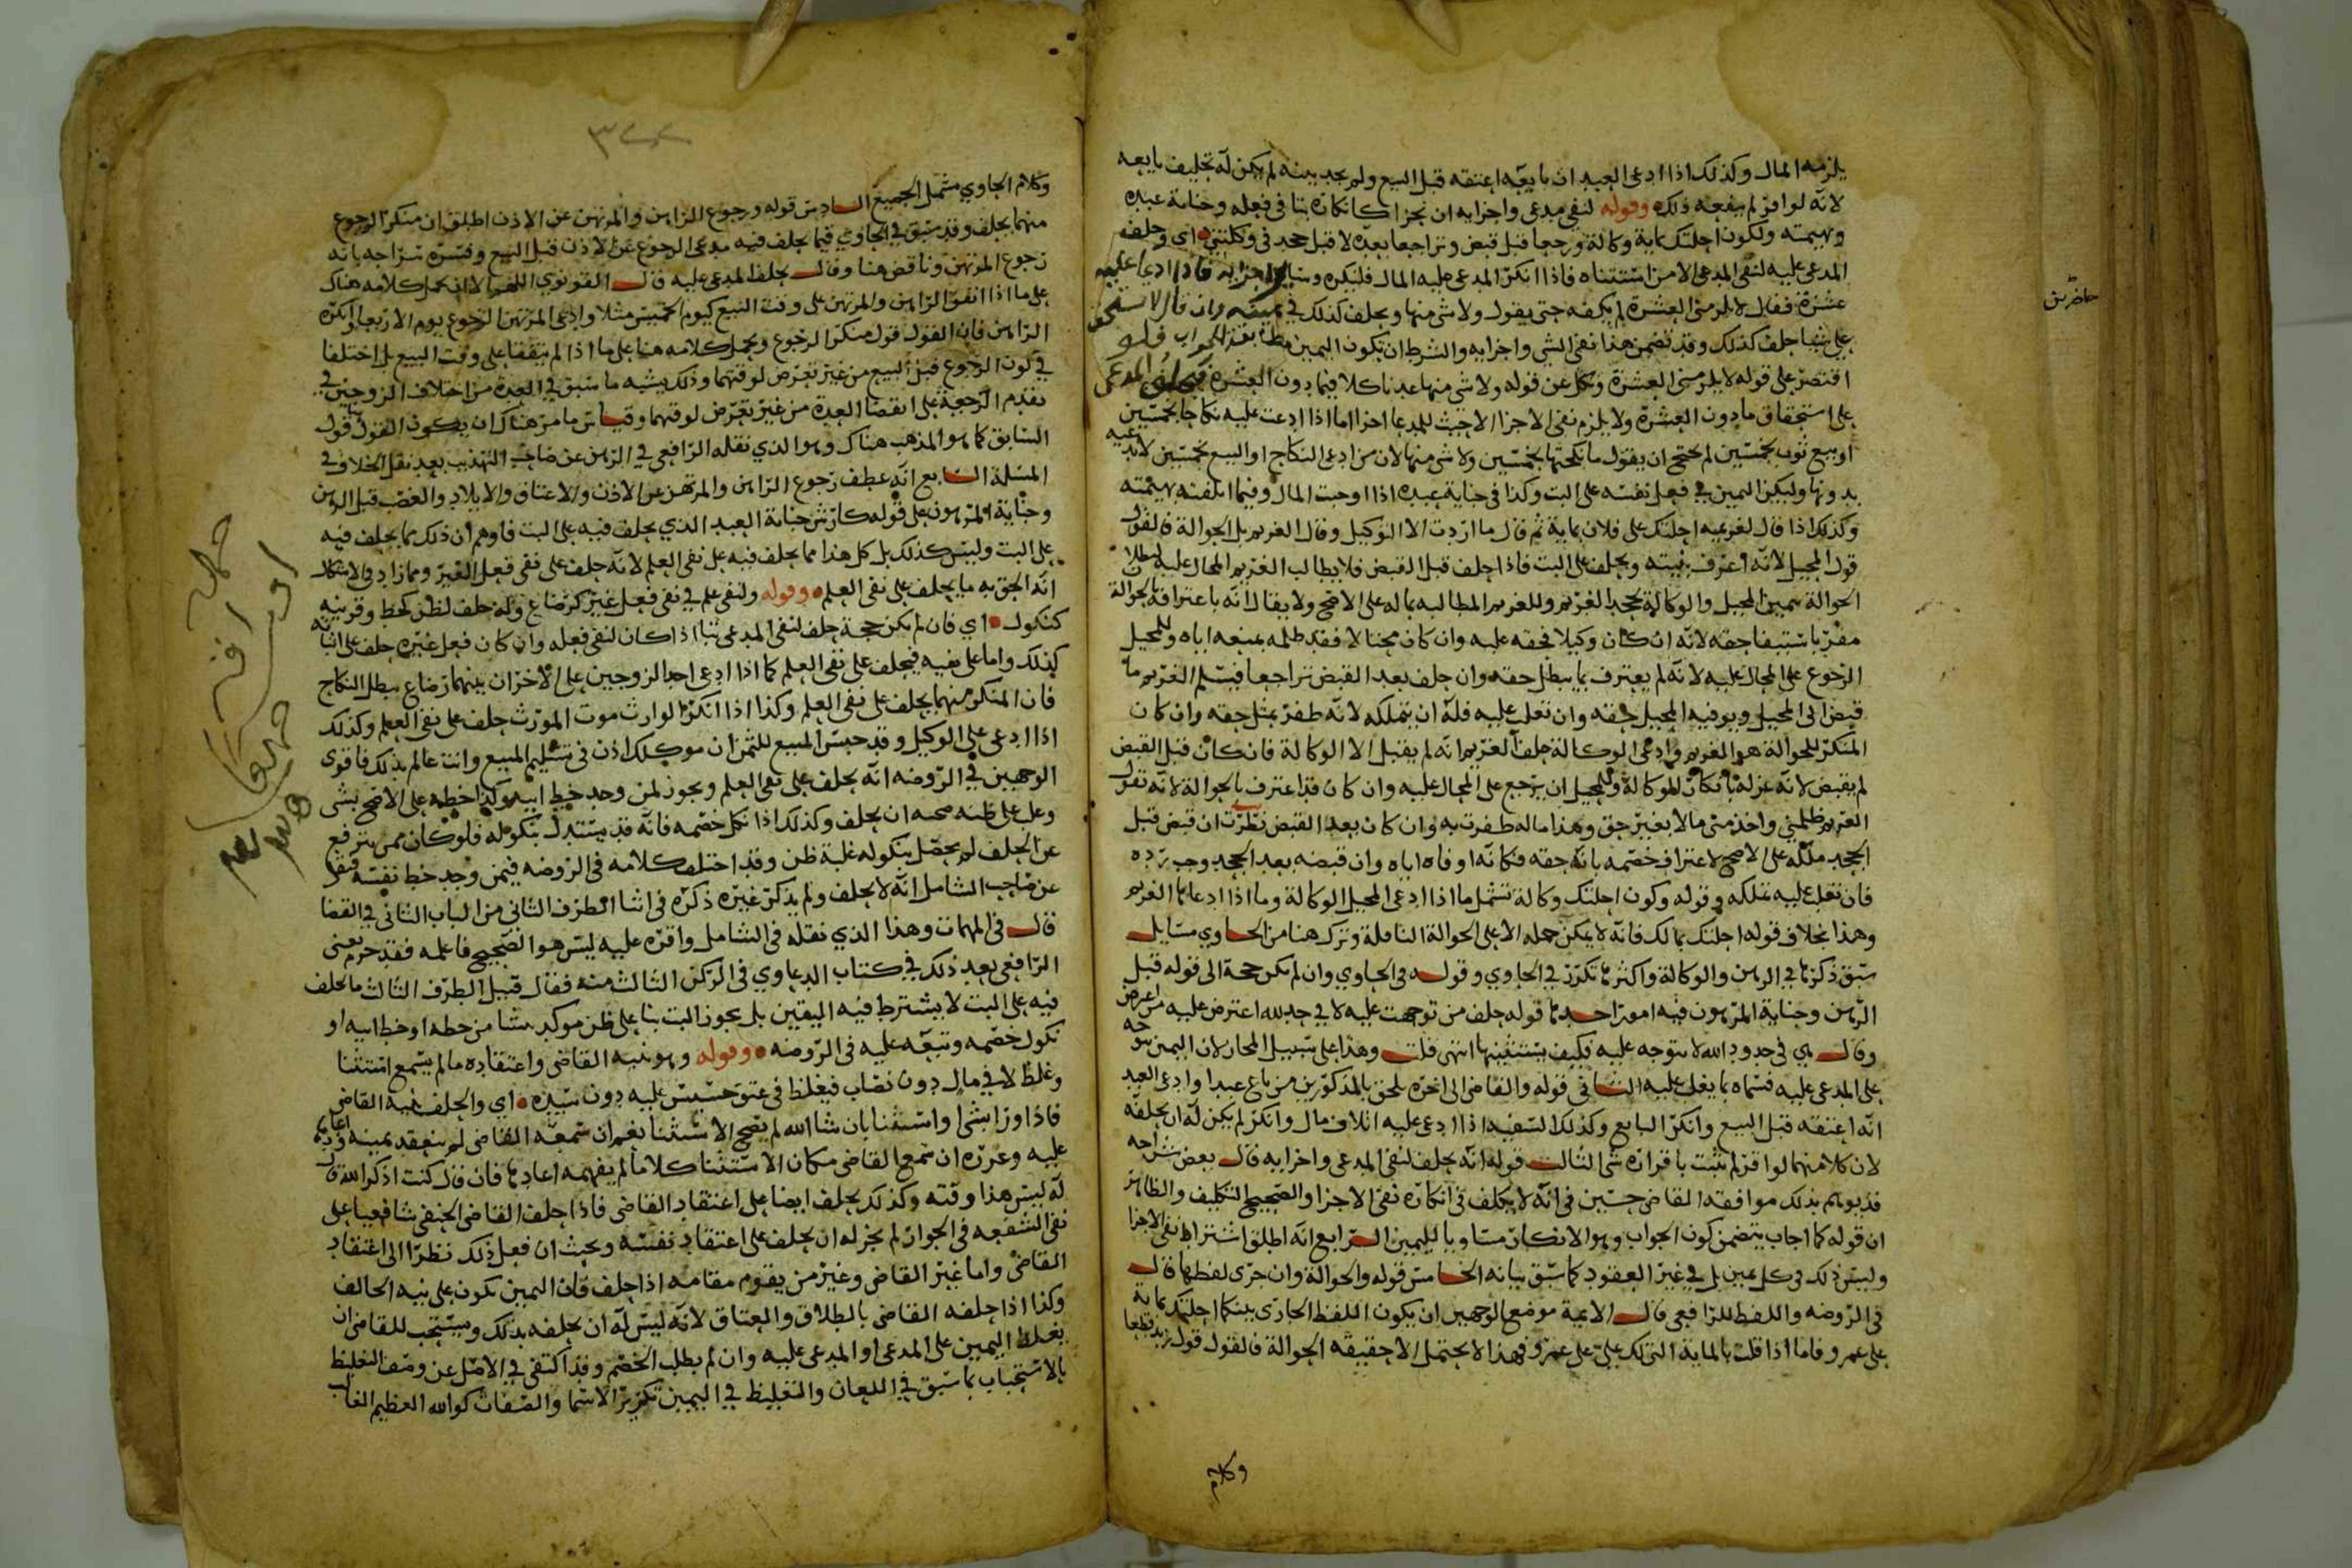 يلزمه المال وكذلك اذا ادعى العبد ان بايعه اعتقه قبل البيع ولم يجد بينه لم يكن له تحليف بايعه
لانه لو اقر لم ينفعه ذلك وقوله لنفي مدعى واجزايه ان نجزا كانكاره بتا في فعله وجناية عبده
وبهيمته ولكون احلتك بماية وكالة ورجعا قبل قبض وتراجعا بعده لا قبل جحد في وكلتني اي وحلف
المدعى عليه لنفي المدعى الا من استثناه فاذا انكر المدعى عليه المال فلينكره وساير اجزايه فاذا ادعا عليه
عشرة فقال لا يلزمني العشرة لم يكفه حتى يقول ولا شي منها ويحلف كذلك في يمينه وان قال لا تستحق
علي شيا حلف كذلك وقد تضمن هذا نفي الشي واجزايه والشرط ان تكون اليمين مطابقة للجواب فلو
اقتصر على قوله لا يلزمني العشرة ونكل عن قوله ولا شي منها عد ناكلا فيما دون العشرة فيحلف المدعى
على استحقاق ما دون العشرة ولا يلزم نفي الاجزا الا حيث للمدعا اجزا اما اذا ادعت عليه نكاحا بخمسين
او بيع ثوب بخمسين لم يحتج ان يقول ما نكحتها بخمسين ولا شي منها لان من ادعى النكاح او البيع بخمسين لا يدعيه
بدونها وليكن اليمين في فعل نفسه على البت وكذا في جناية عبده اذا اوجبت المال وفيما اتلفته بهيمته
وكذلك اذا قال لغريمه احلتك على فلان بماية ثم قال ما اردت الا التوكيل وقال الغريم بل الحوالة فالقول
قول المحيل لانه اعرف بنيته ويحلف على البت فاذا حلف قبل القبض فلا يطالب الغريم المحال عليه لبطلان
الحوالة بيمين المحيل والوكالة بجحد الغريم وللغريم المطالبه بماله على الاصح ولا يقال انه باعترافه بالحوالة
مقر باستيفا حقه لانه ان كان وكيلا فحقه عليه وان كان محتالا فقد ظلمه بمنعه اياه وللمحيل
الرجوع على المحال عليه لانه لم يعترف بما يبطل حقه وان حلف بعد القبض تراجعا فيسلم الغريم ما
قبض الى المحيل ويوفيه المحيل حقه وان تعلب عليه فله ان يتملكه لانه ظفر بمثل حقه وان كان
المنكر للحوالة هو الغريم وادعى الوكالة حلف الغريم انه لم يقبل الا الوكالة فان كان قبل القبض
لم يقبض لانه عزله بانكار الوكالة وللمحيل ان يرجع على المحال عليه وان كان قد اعترف بالحوالة لانه يقول
الغريم ظلمني واخذ مني مالا بغير حق وهذا ماله ظفرت به وان كان بعد القبض نظرت ان قبض قبل
الجحد ملكه على الاصح لاعتراف خصمه بانه حقه فكانه اوفاه اياه وان قبضه بعد الجحد وجب رده
فان تعلب عليه تملكه وقوله وكون احلتك وكالة تشمل ما اذا ادعى المحيل الوكالة وما اذا ادعاها الغريم
وهذا بخلاف قوله احلتك بمالك فانه لا يمكن حمله الا على الحوالة الناقلة وترك هنا من الحاوي مسايل
سبق ذكرها في الرهن والوكالة واكثرها تكرر في الحاوي وقوله في الحاوي وان لم تكن حجة الى قوله قبل
الرهن وجناية المرهون فيه امور احدها قوله حلف من توجهت عليه لا في حد لله اعترض عليه من اعرض
وقال هي في حدود الله لا تتوجه عليه فكيف يستثنيها انتهى قلت وهذا على سبيل المجاز لان اليمين توجه
على المدعى عليه فسماه بما يغلب عليه الثاني قوله والقاضي الى اخره يلحق بالمذكورين من باع عبدا وادعى العبد
انه اعتقه قبل البيع وانكر البايع وكذلك السفيه اذا ادعى عليه اتلاف مال وانكر لم يكن له ان يحلفه
لان كلا منهما لو اقر لم يثبت باقراره شي الثالث قوله انه يحلف لنفي المدعى واجزايه قال بعض شراحه
قد يوهم بذلك موافقه القاضي حسين في انه لا يكلف في انكاره نفي الاجزا والصحيح التكليف والظاهر
ان قوله كما اجاب يتضمن كون الجواب وهو الانكار مساويا لليمين الرابع انه اطلق اشتراط نفي الاجزا
وليس ذلك في كل يمين بل في غير العقود كما سبق بيانه الخامس قوله والحوالة وان جرى لفظها قال
في الروضه واللفظ للرافعي قال الايمة موضع الوجهين ان يكون اللفظ الجاري بينكما احلتك بماية
على عمرو فاما اذا قلت بالماية التي لك علي على عمرو فهذا لا يحتمل الا حقيقة الحوالة فالقول قول زيد قطعا
وكلام
حاضرين
وكلام الحاوي مشمل الجميع السادس قوله ورجوع الراهن والمرتهن عن الاذن اطلق ان منكر الرجوع
منهما يحلف وقد سبق في الحاوي فيما يحلف فيه مدعى الرجوع عن الاذن قبل البيع وفسره شراحه بانه
رجوع المرتهن وناقض هنا وقال يحلف المدعى عليه قال القونوي اللهم الا ان يحمل كلامه هناك
على ما اذا اتفق الراهن والمرتهن على وقت البيع كيوم الخميس مثلا وادعى المرتهن الرجوع يوم الاربعا وانكره
الراهن فان القول قول منكر الرجوع ويحمل كلامه هنا على ما اذا لم يتفقا على وقت البيع بل اختلفا
في كون الرجوع قبل البيع من غير تعرض لوقتهما وذلك يشبه ما سبق في العدة من اختلاف الزوجين في
تقدم الرجعة على انقضا العدة من غير تعرض لوقتهما وقياس ما مر هناك ان يكون القول قول
السابق كما هو المذهب هناك وهو الذي نقله الرافعي في الرهن عن صاحب التهذيب بعد نقل الخلاف في
المسلة السابع انه عطف رجوع الراهن والمرتهن عن الاذن والاعتاق والايلاد والغصب قبل الرهن
وجناية المرهون على قوله كارش جناية العبد الذي يحلف فيه على البت فاوهم ان ذلك مما يحلف فيه
على البت وليس كذلك بل كل هذا مما يحلف فيه على نفي العلم لانه حلف على نفي فعل الغير ومما زاد في الاشكال
انه الحق به ما يحلف على نفي العلم وقوله ولنفي علم في نفي فعل غير كرضاع وله حلف لظن كخط وقرينه
كنكول اي فان لم تكن حجة حلف لنفي المدعى بتا اذا كان لنفي فعله وان كان فعل غيره حلف على اثباته
كذلك واما على نفيه فيحلف على نفي العلم كما اذا ادعى احد الزوجين على الاخر ان بينهما رضاع يبطل النكاح
فان المنكر منهما يحلف على نفي العلم وكذا اذا انكر الوارث موت المورث حلف على نفي العلم وكذلك
اذا ادعى على الوكيل وقد حبس المبيع للثمن ان موكلك اذن في تسليم المبيع وانت عالم بذلك فاقوى
الوجهين في الروضه انه يحلف على نفي العلم ويجوز لمن وجد خط ابيه وكذا خطه على الاصح بشي
وغلب على ظنه صحته ان يحلف وكذلك اذا نكل خصمه فانه قد يستدل بنكوله فلو كان ممن يترفع
عن الحلف لم يحصل بنكوله غلبة ظن وقد اختلف كلامه في الروضه فيمن وجد خط نفسه فنقل
عن صاحب الشامل انه لا يحلف ولم يذكر غيره ذكره في اثنا الطرف الثاني من الباب الثاني في القضا
قال في المهمات وهذا الذي نقله في الشامل واقره عليه ليس هو الصحيح فاعلمه فقد جزم يعني
الرافعي بعد ذلك في كتاب الدعاوي في الركن الثالث منه فقال قبيل الطرف الثالث ما يحلف
فيه على البت لا يشترط فيه اليقين بل يجوز البت بنا على ظن موكد ينشا من خطه او خط ابيه او
نكول خصمه وتبعه عليه في الروضه وقوله وهو بنيه القاضي واعتقاده ما لم يسمع استثنا
وغلظ لا في مال دون نصاب فيغلظ في عتق خسيس عليه دون سيده اي والحلف بنية القاضي
فاذا ورا بشي او استثنا بان شا الله لم يصح الاستثنا نعم ان سمعه القاضي لم ينعقد يمينه واعادها
عليه وعزره ان سمع القاضي مكان الاستثنا كلاما لم يفهمه اعادها فان قال كنت اذكر الله قال
له ليس هذا وقته وكذلك يحلف ايضا على اعتقاد القاضي فاذا حلف القاضي الحنفي شافعيا على
نفي الشفعه في الجوار لم يجز له ان يحلف على اعتقاد نفسه وحنث ان فعل ذلك نظرا الى اعتقاد
القاضي واما غير القاضي وغير من يقوم مقامه اذا حلف فان اليمين تكون على نيه الحالف
وكذا اذا حلفه القاضي بالطلاق والعتاق لانه ليس له ان يحلفه بذلك ويستحب للقاضي ان
يغلظ اليمين على المدعى او المدعى عليه وان لم يطلب الخصم وقد اكتفى في الاصل عن وصف التغليظ
بالاستحباب بما سبق في اللعان والتغليظ في اليمين تكرير الاسما والصفات كوالله العظيم الغالب